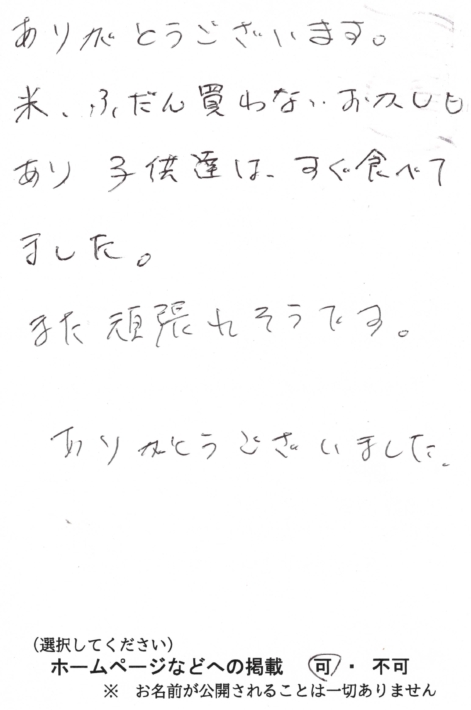 ありがとうございます。
米、ふだん買わないおかしも
あり 子供達は、すぐ食べて
ました。
また頑張れそうです。
ありがとうございました。
（選択してください）
ホームページなどへの掲載 可・ 不可
※ お名前が公開されることは一切ありません